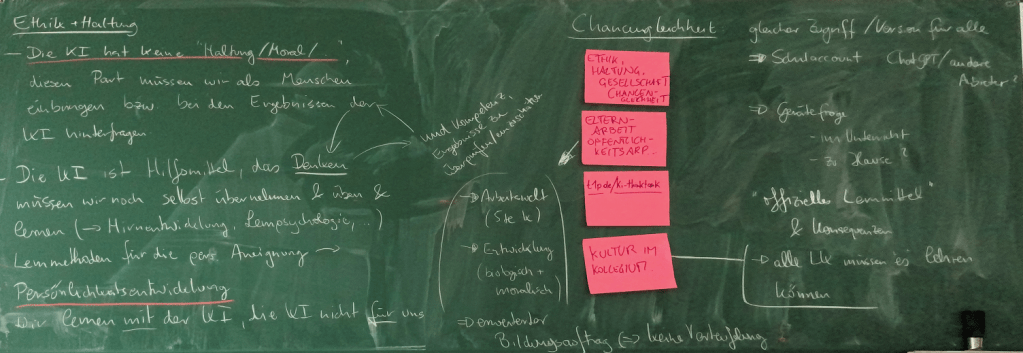 Ethik + Haltung
– Die KI hat keine "Haltung/Moral/...",
diesen Part müssen wir als Menschen
einbringen bzw. bei den Ergebnissen der
KI hinterfragen
und Kompetenz,
Ergebnisse zu
– Die KI ist Hilfsmittel, das Denken
müssen wir noch selbst übernehmen & üben &
lernen (→ Hirnentwicklung, Lernpsychologie, ...)
Lernmethoden für die pers. Aneignung →
Persönlichkeitsentwicklung
Wir lernen mit der KI, die KI nicht für uns
→ Arbeitswelt
→ Entwicklung
(biologisch +
moralisch)
⇒ erweiterter
Bildungsauftrag (⇒ keine
Chancengleichheit
ETHIK,
HALTUNG,
GESELLSCHAFT
CHANCEN-
GLEICHHEIT
ELTERN-
ARBEIT
ÖFFENTLICH-
KEITSARB...
KULTUR IM
KOLLEGIUM
gleicher Zugriff / Version für alle
⇒ Schulaccount ChatGPT/andere
Anbieter?
⇒ Gerätefrage
- im Unterricht
- zu Hause?
"offizielles Lernmittel"
& Konsequenzen
→ alle LK müssen es lehren
können